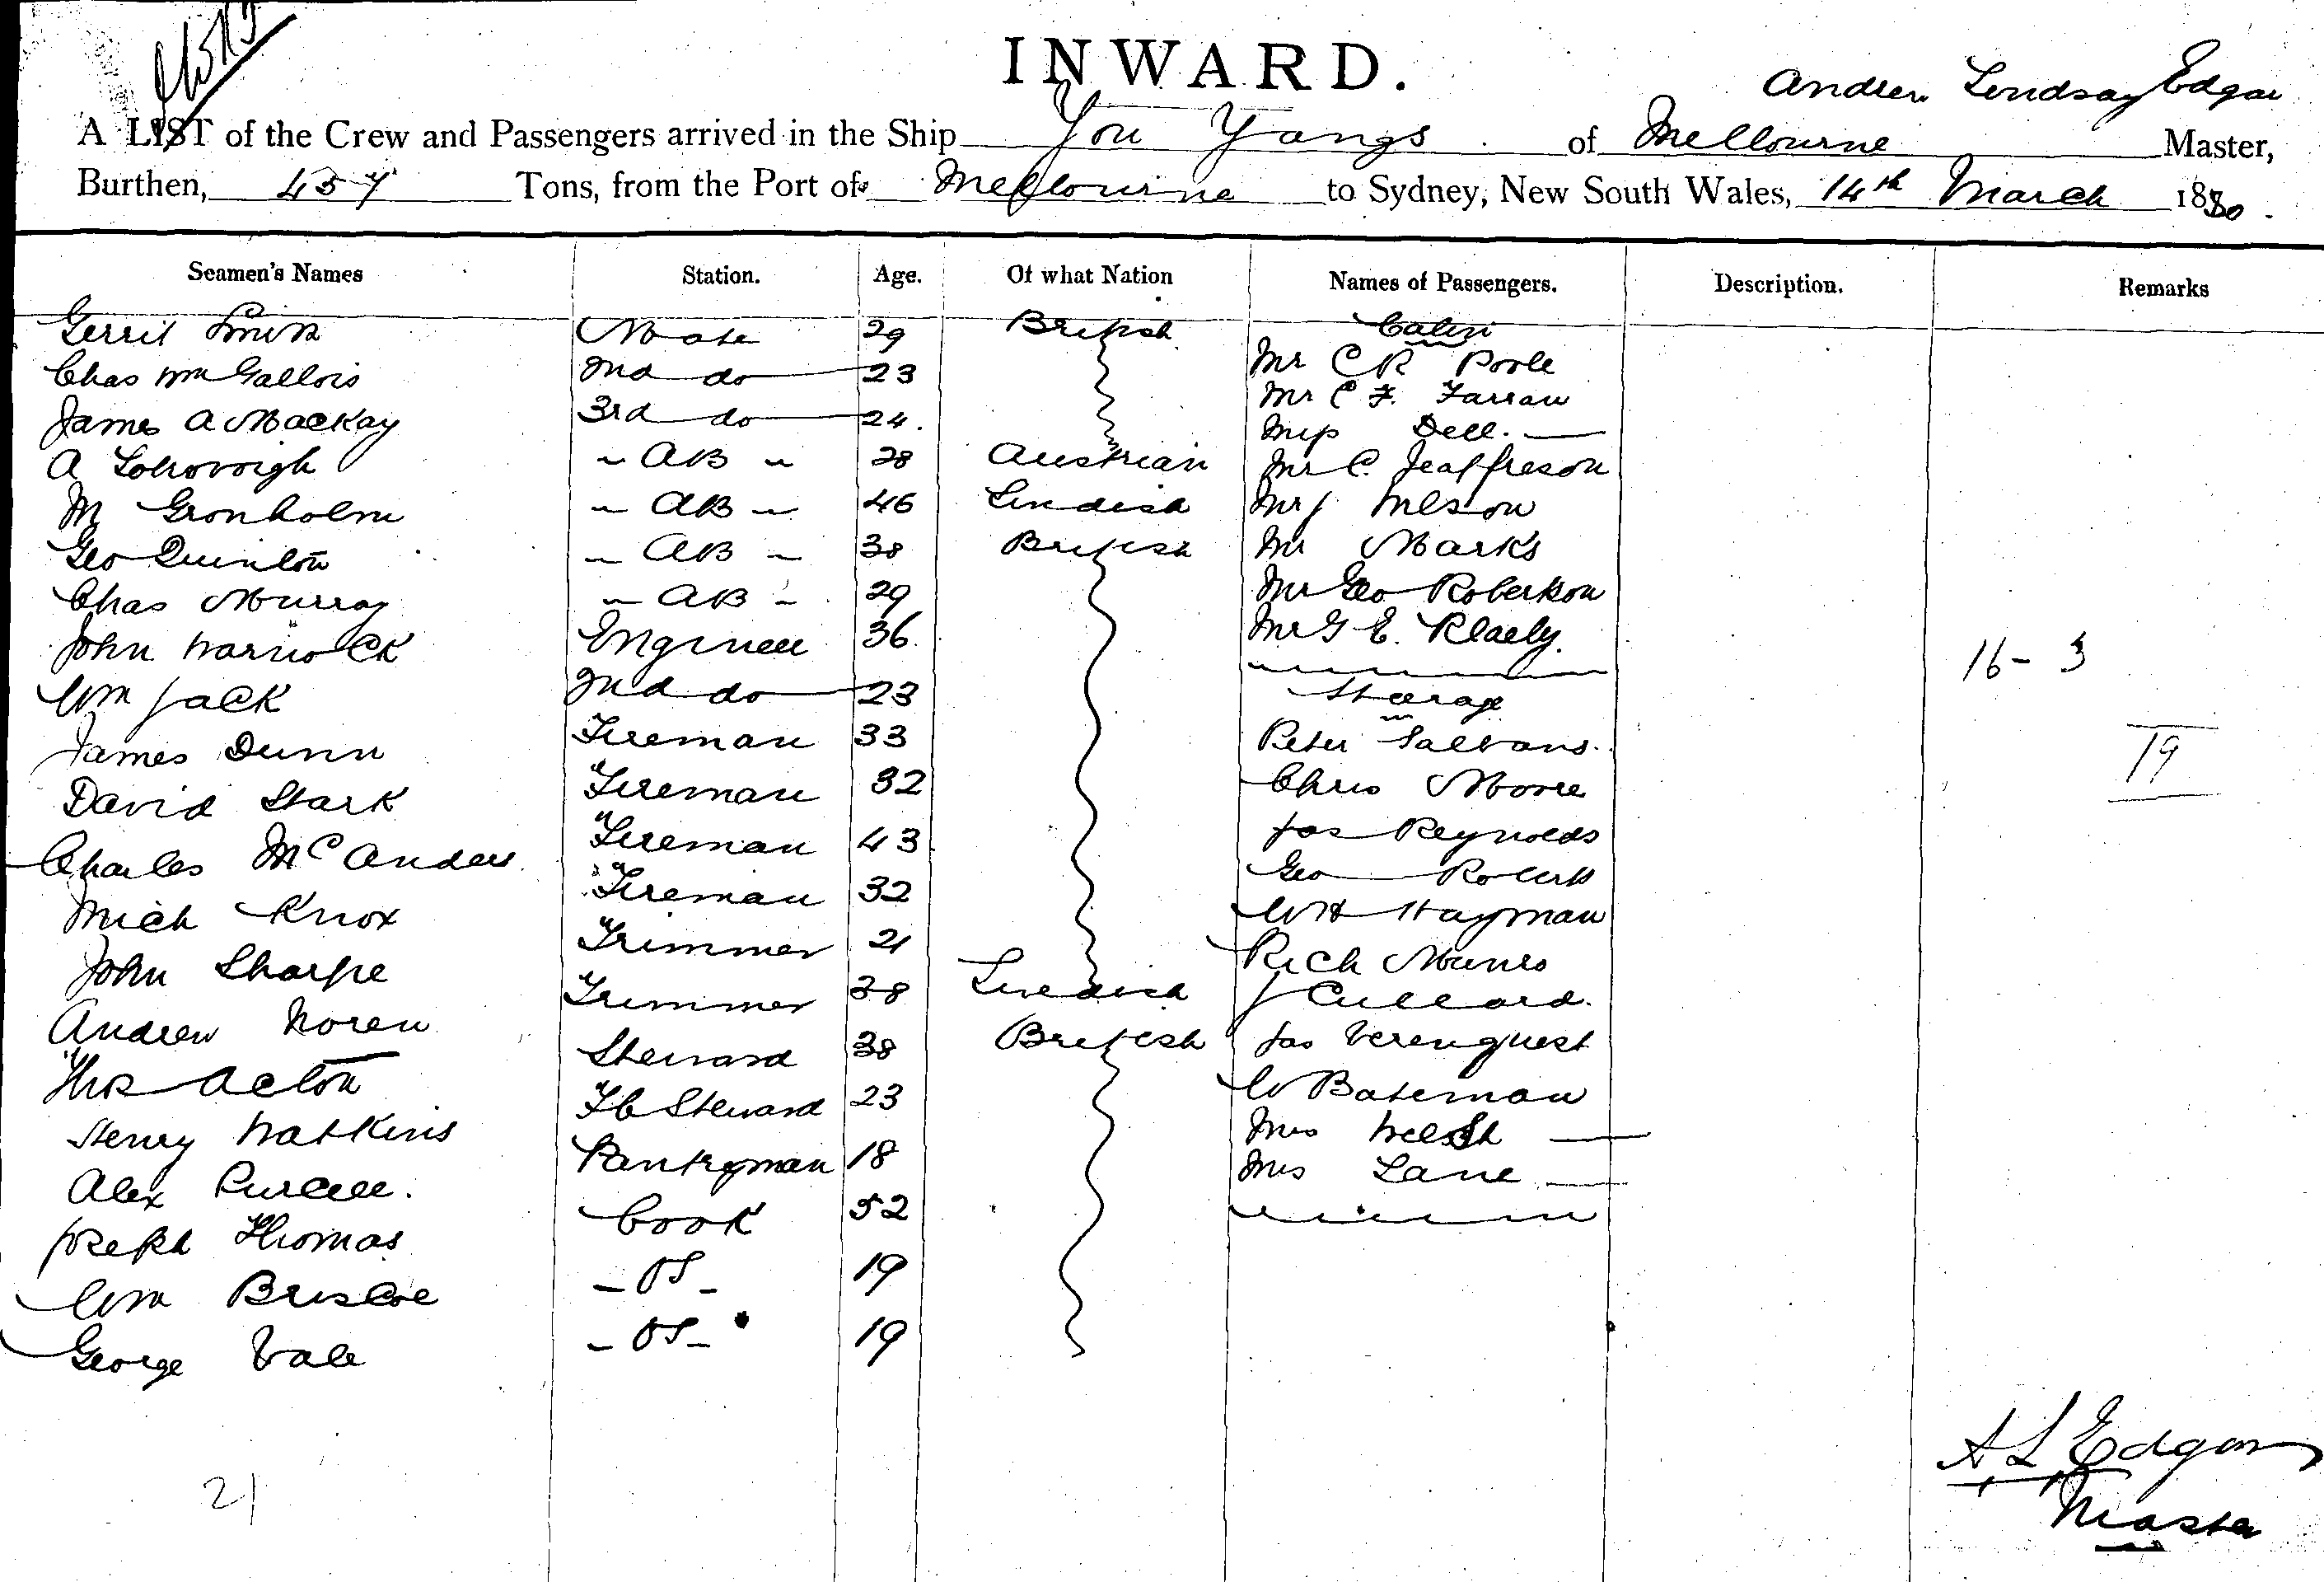 INWARD.
Andrew Lindsay Edgar
A LIST of the Crew and Passengers arrived in the Ship You Yangs of Melbourne Master,
Burthen, 457 Tons, from the Port of Melbourne to Sydney, New South Wales, 14th March 1880.
Seamen's Names Station. Age. Of what Nation Names of Passengers. Description. Remarks
Gerrit Smith Mate 29 British Cabin
Chas Wm Gallois 2nd do 23 Mr C R Poole
James A Mackay 3rd do 24. Mr C F. Farran
Miss Dell.
A AB 28 Austrian Mr C. Jeaffreson
M Gronholm AB 46 Swedish Mr J Nelson
Geo Quinton AB 38 British Mr Marks
Chas Murray AB 29 Mr Geo Robertson
John Warnock Engineer 36. Mr G E.
16 - 3
Wm Jack 2nd do 23 Steerage
James Dunn Fireman 33 Peter
19
David Stark Fireman 32 Chris Moore
Charles McAnders Fireman 43 Jas Reynolds
Mich Knox Fireman 32 Geo Roberts
W H Hayman
John Sharpe Trimmer 21 Rich Munro
Andrew Noren Trimmer 38 Swedish J Cullard.
Thos Acton Steward 38 British Jas Verenquest
Henry Watkins F C Steward 23 W Bateman
Alex Purcell. Pantryman 18 Mrs Welsh
Mrs Lane
Joseph Thomas Cook 52
Wm Briscoe OS 19
George Vale OS 19
A L Edgar
Master
21